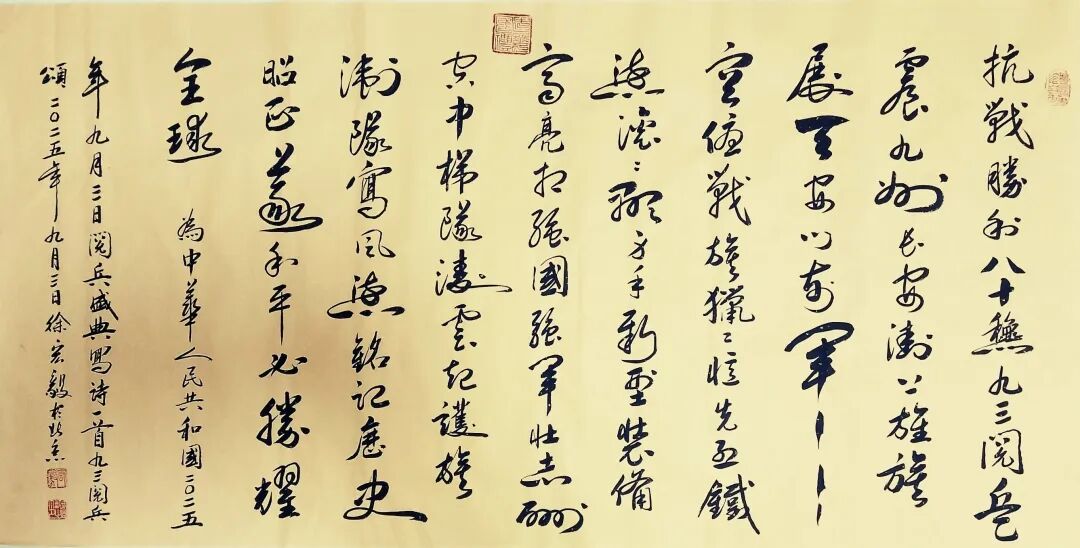 抗戰勝利八十穐九三閱兵
震九州長安街上旌旗
展天安門前軍
戰旗獵〻憶先烈鐵
流滾〻顯身手新型裝備
高亮相強國強軍壯志酬
空中梯隊凌雲起護旗
衛隊寫風流銘記歷史
昭正義和平必勝耀
全球
為中華人民共和國二〇二五
年九月三日閱兵盛典寫詩一首九三閱兵
頌二〇二五年九月三日徐宏毅於北京